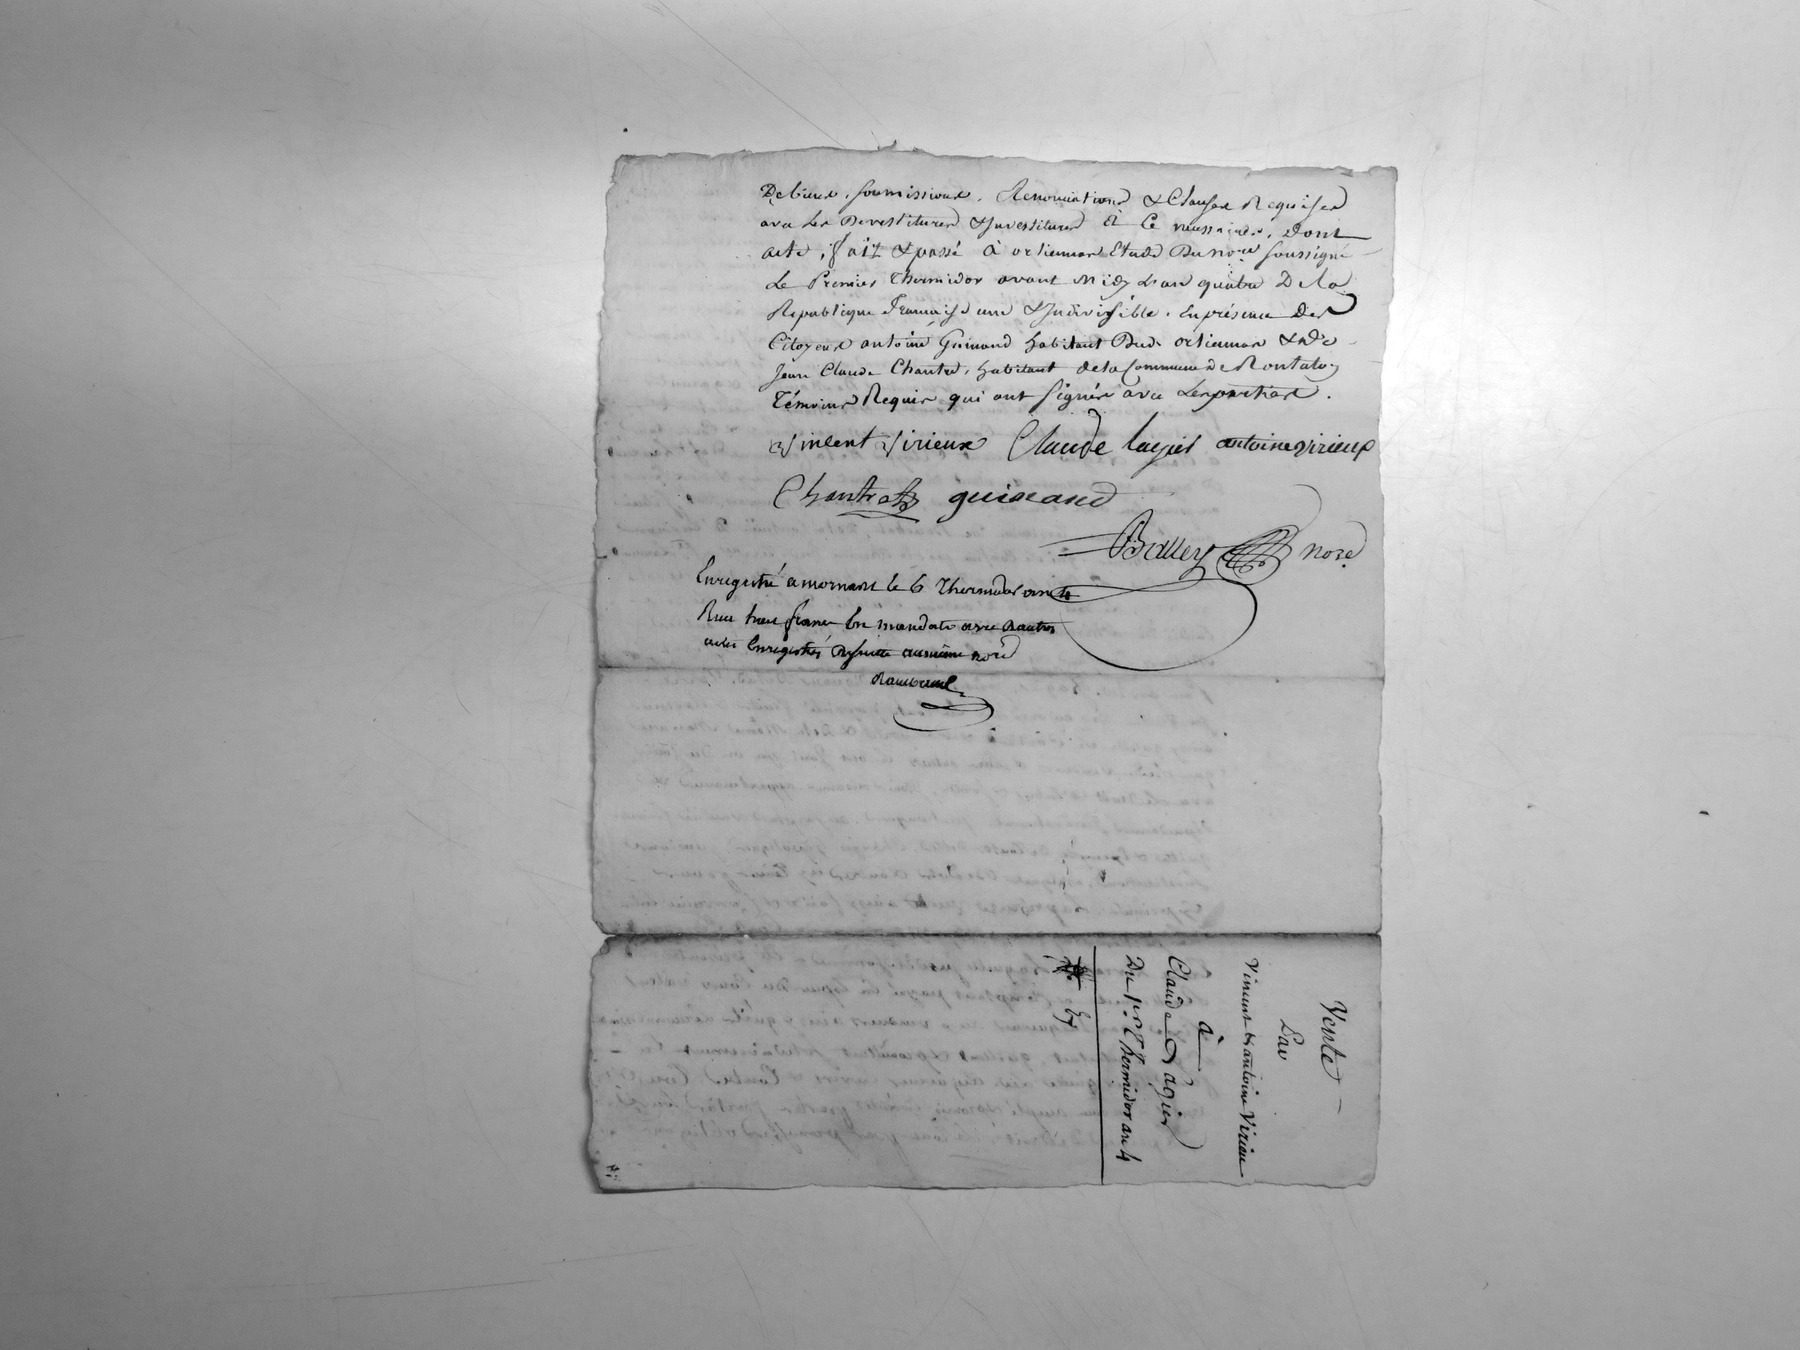 De bieux, soumissions, Renonciations & Clauses Requises
avec les Devestitures & Investitures à Ce necessaires, Dont
acte, fait & passé à orlienas Etude Du nore soussigné
Le Premier Thermidor avant Midy L'an quatre De la
Republique francaise une & Indivisible. En présence des
Citoyens antoine Guinand habitant Dud. orlienas & de
Jean Claude Chantre, habitant de la Commune de Rontalon
Témoins Requis qui ont signés avec Les parties.
vincent virieux Claude lagier antoine virieux
Chantre guinand
Balley nore
Enregistré a mornant le 6 Thermidor an 4
Recu trois francs en mandats avec dautres
actes Enregistrés de suitte au même nore
Vente
Par
Vincent & antoine Virieu
à
Claude Lagier
Du 1er. Thermidor an 4